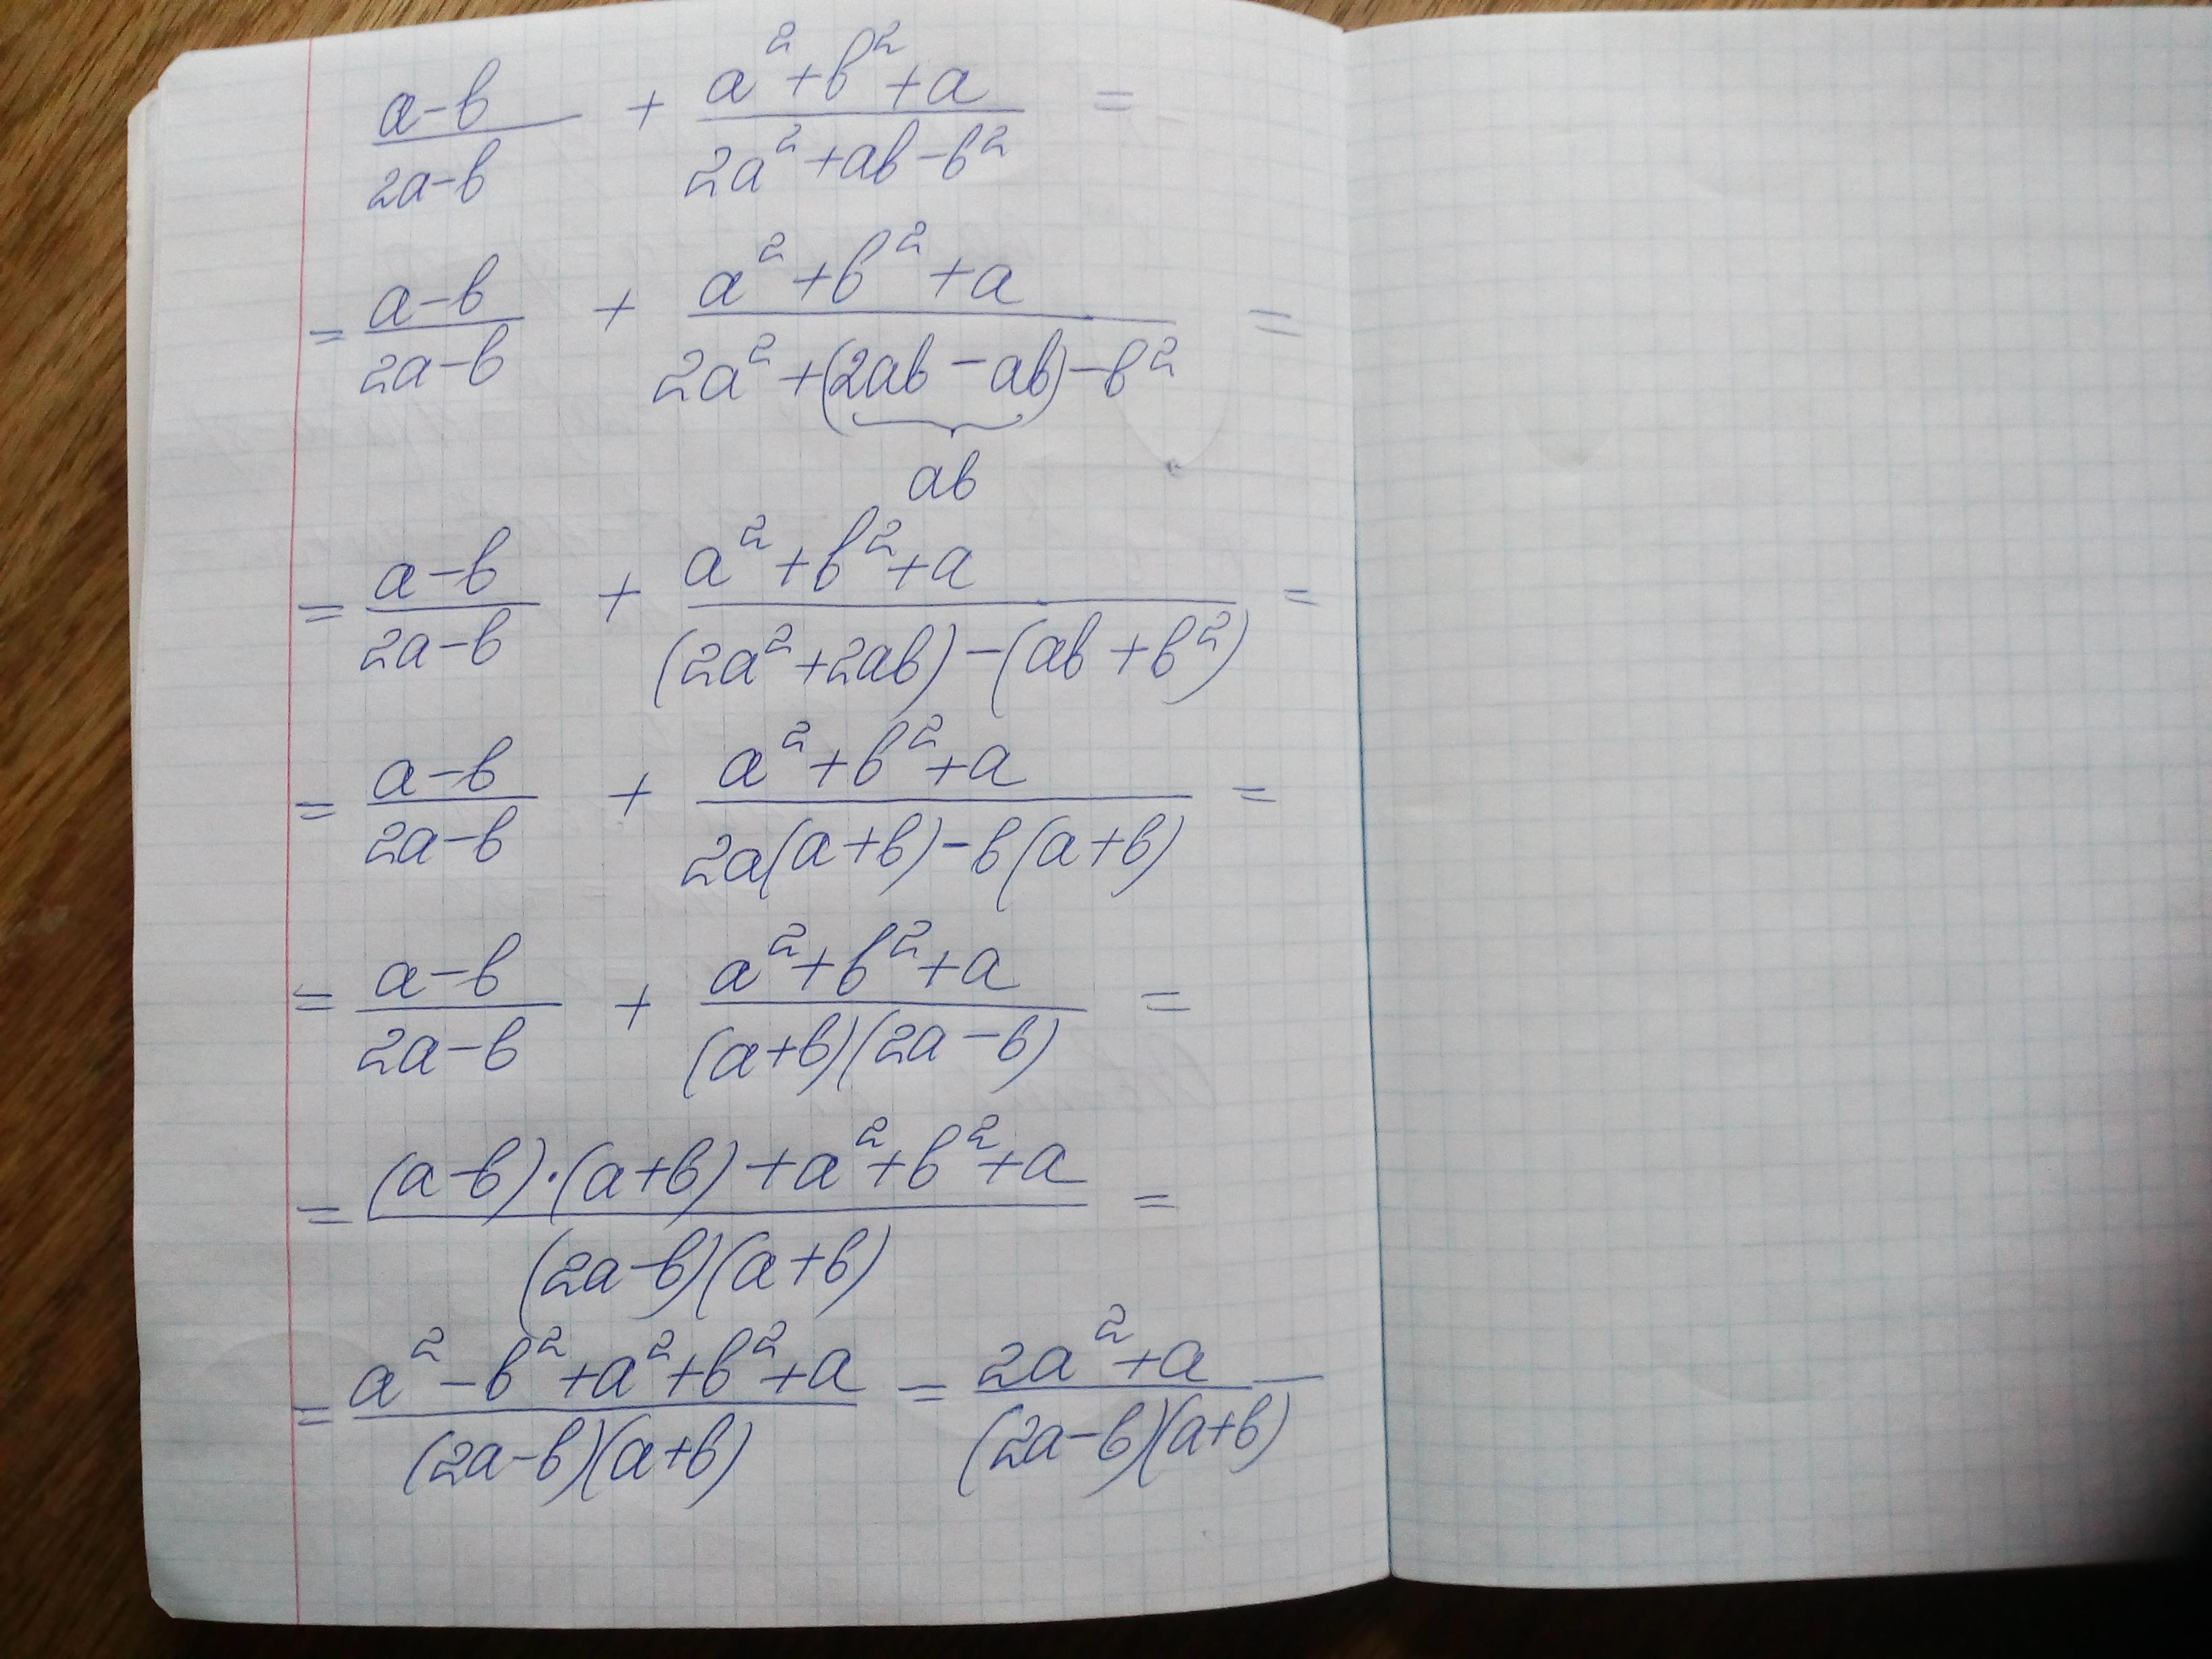 (a-b)/(2a-b) + (a²+b²+a)/(2a²+ab-b²) =
= (a-b)/(2a-b) + (a²+b²+a)/(2a²+(2ab-ab)-b²) =
ab
= (a-b)/(2a-b) + (a²+b²+a)/((2a²+2ab)-(ab+b²)) =
= (a-b)/(2a-b) + (a²+b²+a)/(2a(a+b)-b(a+b)) =
= (a-b)/(2a-b) + (a²+b²+a)/((a+b)(2a-b)) =
= ((a-b)·(a+b)+a²+b²+a)/((2a-b)(a+b)) =
= (a²-b²+a²+b²+a)/((2a-b)(a+b)) = (2a²+a)/((2a-b)(a+b))